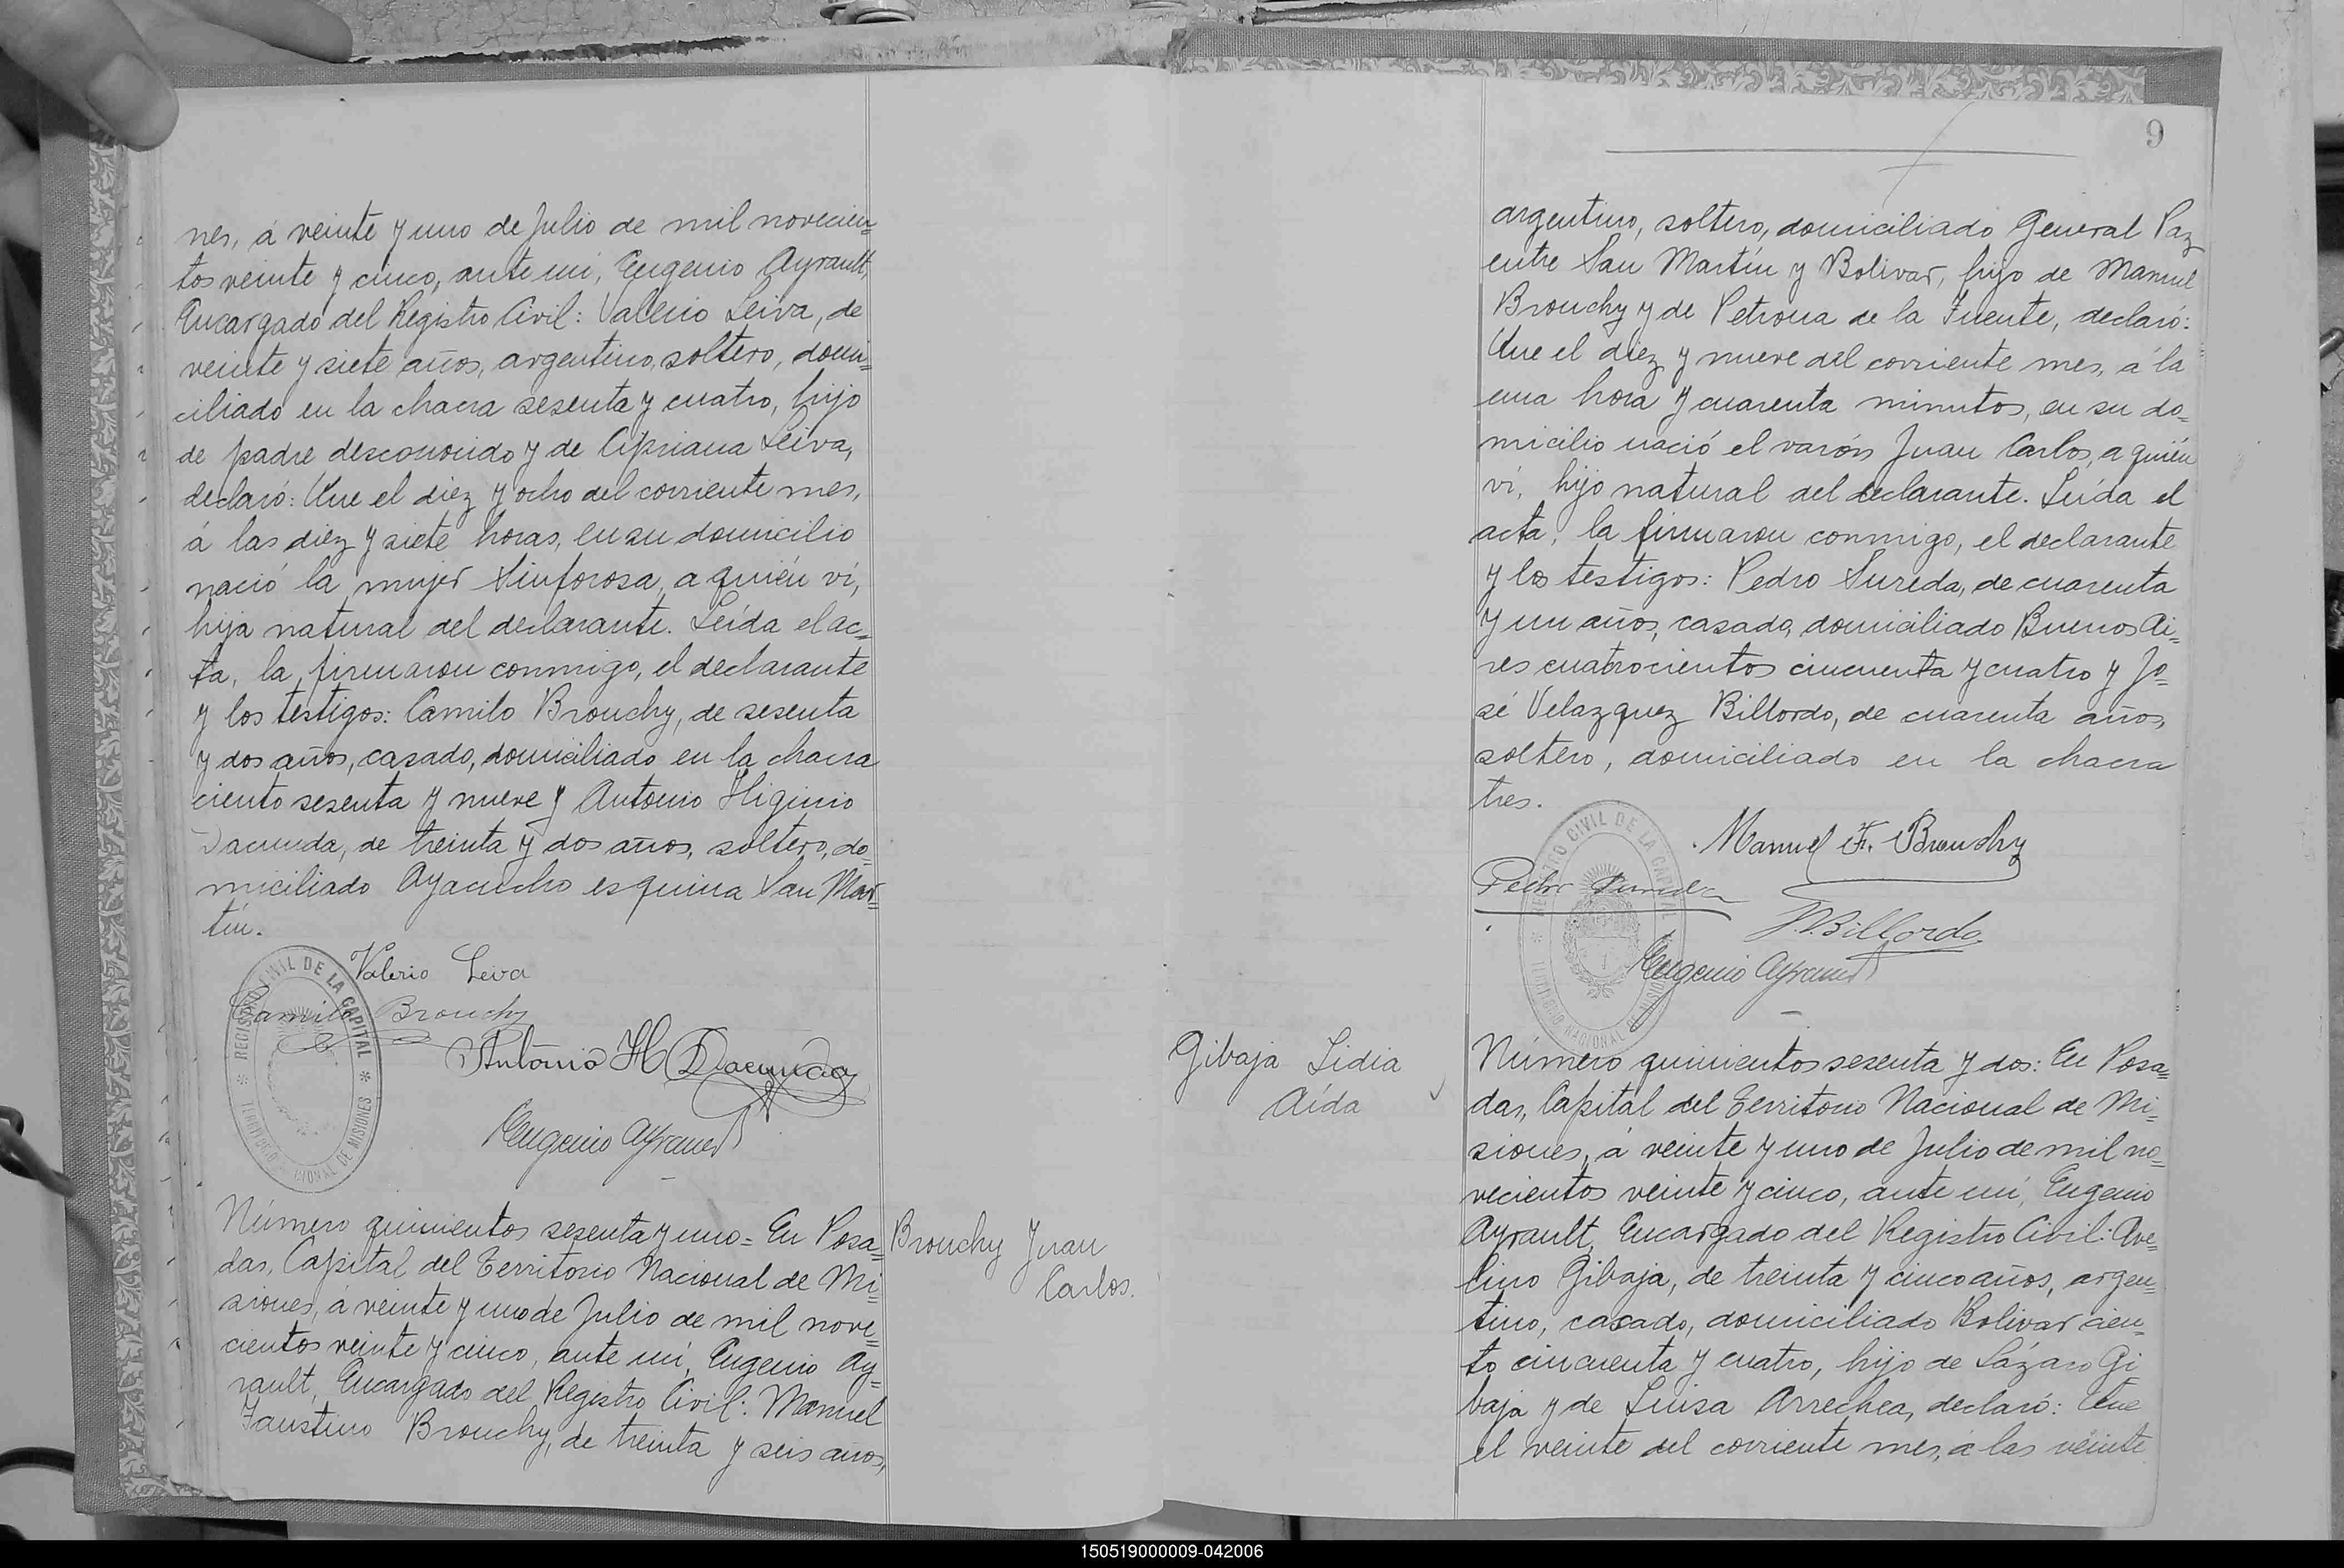 nes, á veinte y uno de Julio de mil novecien=
tos veinte y cinco, ante mí, Eugenio Ayrault,
Encargado del Registro Civil: Valerio Leiva, de
veinte y siete años, argentino, soltero, domi=
ciliado en la chacra sesenta y cuatro, hijo
de padre desconocido y de Cipriana Leiva,
declaró: Que el diez y ocho del corriente mes,
á las diez y siete horas, en su domicilio
nació la mujer Sinforosa, a quién ví,
hija natural del declarante. Leída el ac=
ta, la firmaron conmigo, el declarante
y los testigos: Camilo Brouchy, de sesenta
y dos años, casado, domiciliado en la chacra
ciento sesenta y nueve y Antonio Higinio
Dacunda, de treinta y dos años, soltero, do=
miciliado Ayacucho esquina San Mar=
tín.
REGISTRO CIVIL DE LA CAPITAL
TERRITORIO NACIONAL DE MISIONES
Valerio Leiva
Camilo Brouchy
Antonio H Dacunda
Eugenio Ayrault
Número quinientos sesenta y uno= En Posa=
das, Capital del Territorio Nacional de Mi=
siones, á veinte y uno de Julio de mil nove=
cientos veinte y cinco, ante mí, Eugenio Ay=
rault, Encargado del Registro Civil: Manuel
Faustino Brouchy, de treinta y seis años,
Brouchy Juan
Carlos.
9
argentino, soltero, domiciliado General Paz
entre San Martín y Bolivar, hijo de Manuel
Brouchy y de Petrona de la Fuente, declaró:
Que el diez y nueve del corriente mes, á la
una hora y cuarenta minutos, en su do=
micilio nació el varón Juan Carlos, a quién
ví, hijo natural del declarante. Leída el
acta, la firmaron conmigo, el declarante
y los testigos: Pedro Sureda, de cuarenta
y un años, casado, domiciliado Buenos Ai=
res cuatrocientos cincuenta y cuatro y Jo=
sé Velazquez Billordo, de cuarenta años,
soltero, domiciliado en la chacra
tres.
REGISTRO CIVIL DE LA CAPITAL
TERRITORIO NACIONAL DE MISIONES
Manuel F. Brouchy
Pedro Sureda
J.V.Billordo
Eugenio Ayrault
Gibaja Lidia
Aída
Número quinientos sesenta y dos: En Posa=
das, Capital del Territorio Nacional de Mi=
siones, á veinte y uno de Julio de mil no=
vecientos veinte y cinco, ante mí, Eugenio
Ayrault, Encargado del Registro Civil: Ave=
lino Gibaja, de treinta y cinco años, argen=
tino, casado, domiciliado Bolivar cien=
to cincuenta y cuatro, hijo de Lázaro Gi
baja y de Luisa Arrechea, declaró: Que
el veinte del corriente mes, á las veinte
150519000009-042006